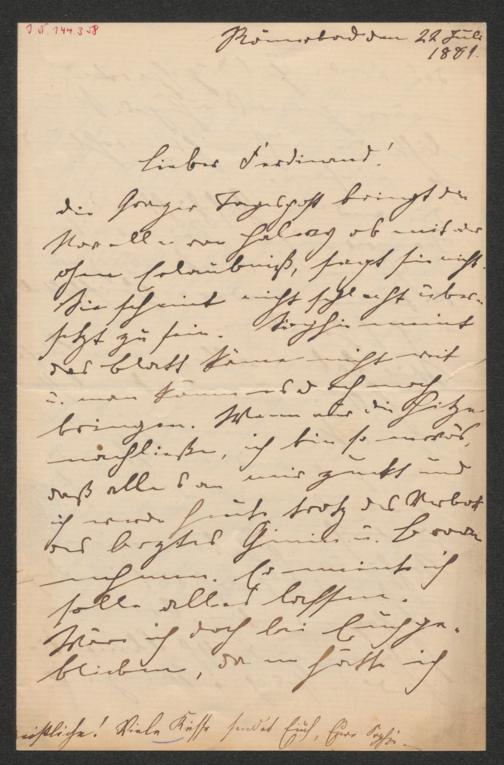 I.N. 144.358
Römerbad den 22 Juli
1881.
Lieber Ferdinand!
die Grazer Tagespost bringt die
Novelle von Halevy ob mit oder
ohne Erlaubniß, sagt sie nicht.
Sie scheint nicht schlecht über-
setzt zu sein. Sophie meint
das Blatt käme nicht weit
u. man könne es doch noch
bringen. Wenn nur die Hitze
nachließe, ich bin so nervös,
daß alles an mir zuckt und
ich werde heute trotz des Verbot
des Arztes Ginin u. Brom
nehmen. Er meinte ich
solle alles lassen.
Wäre ich doch bei Euch ge-
blieben, da hätte ich
Viele Küsse sendet Euch, Eure Sophie